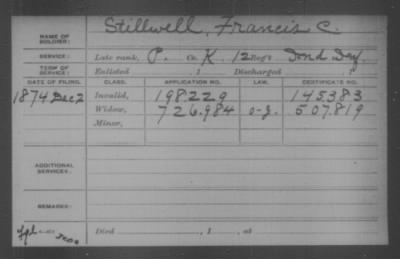 NAME OF SOLDIER: Stillwell, Francis C.
SERVICE: Late rank, P. Co. K, 12 Reg't
TERM OF SERVICE: Enlisted , 1 Discharged , 1
DATE OF FILING. CLASS. APPLICATION NO. LAW. CERTIFICATE NO.
1874 Dec 2 Invalid, 198.229 145.383
Widow, 726.984 o-g. 507.819
Minor,
ADDITIONAL SERVICES:
REMARKS:
Died , 1 , at